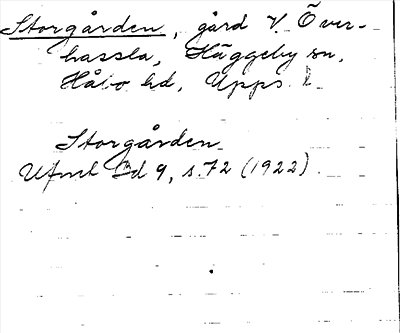 Storgården, gård V. Över-
hassla, Häggeby sn,
Håbo hd, Upps. l.
Storgården
Ufmt Bd 9, s. 72 (1922).